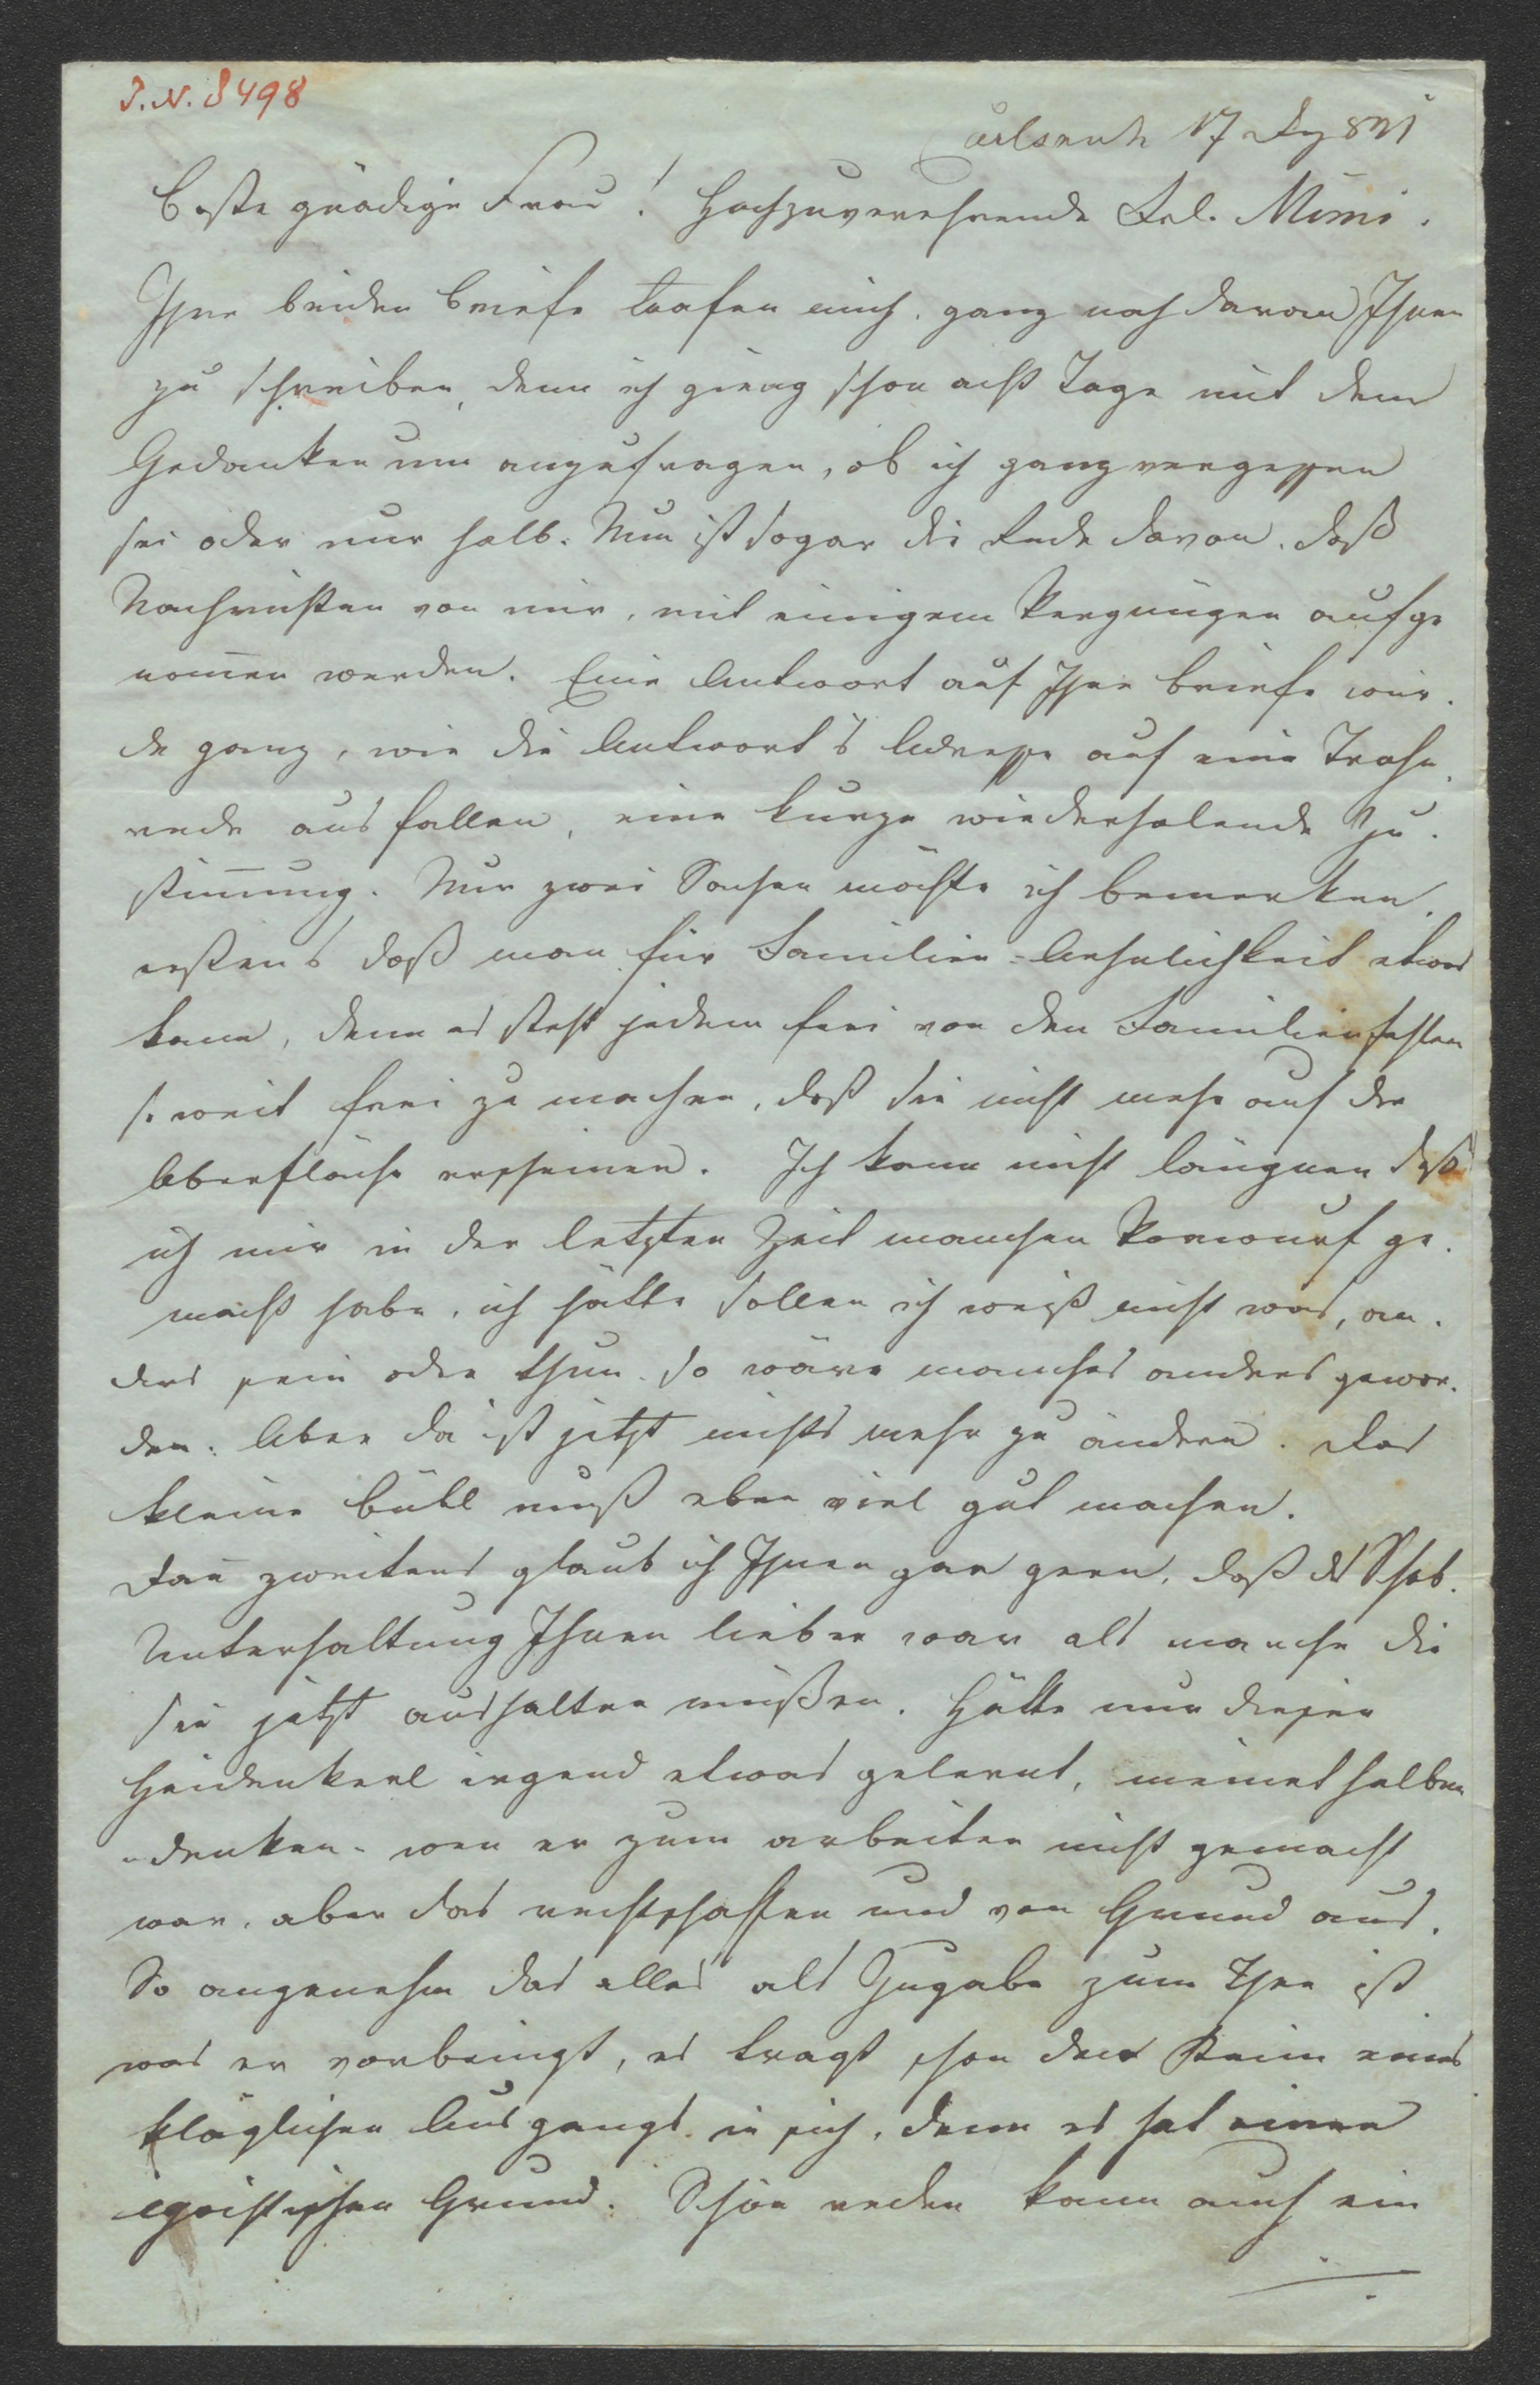 J.N. 8498
Carlsruh 17 Dz 871
Beste gnädige Frau! Hochzuverehrende Frl. Mimi.
Ihre beiden Briefe trafen mich, ganz nah daran Ihnen
zu schreiben, denn ich gieng schon acht Tage mit dem
Gedanken um anzufragen, ob ich ganz vergessen
sei oder nur halb. Nun ist sogar die Rede davon, daß
Nachrichten von mir, mit einigem Vergnügen aufge
nom̄en werden. Eine Antwort auf Ihre Briefe wür-
de ganz, wie die Antwort's Adresse auf eine Trohn-
rede ausfallen, eine kurze wiederholende Zu-
stim̄ung. Nur zwei Sachen möchte ich bemerken,
erstens daß man für Familien-Aehnlichkeit etwas
kann, denn es steht jedem frei von den Familienfehlern
so weit frei zu machen, daß sie nicht mehr auf der
Oberfläche erscheinen. Ich kann nicht läugnen daß
ich mir in der letzten Zeit manchen Vorwurf ge-
macht habe, ich hätte sollen ich weiß nicht was, an-
ders sein oder thun, so wäre manches anders gewor-
den. Aber da ist jetzt nichts mehr zu ändern. Das
kleine Bübl muß eben viel gut machen.
Dan̄ zweitens glaub ich Ihnen gar gern, daß des
Unterhaltung Ihnen lieber war als manche die
Sie jetzt aushalten müßen. Hätte nur dieser
Heidenkerl irgend etwas gelernt, meinethalben
denken, wen er zum arbeiten nicht gemacht
war, aber das rechtschaffen und von Grund aus.
So angenehm das alles als Zugabe zum Thee ist
was er vorbringt, es tragt schon den Keim eines
kläglichen Ausgangs in sich, denn es hat einen
egoistischen Grund. Schön reden kann auch ein